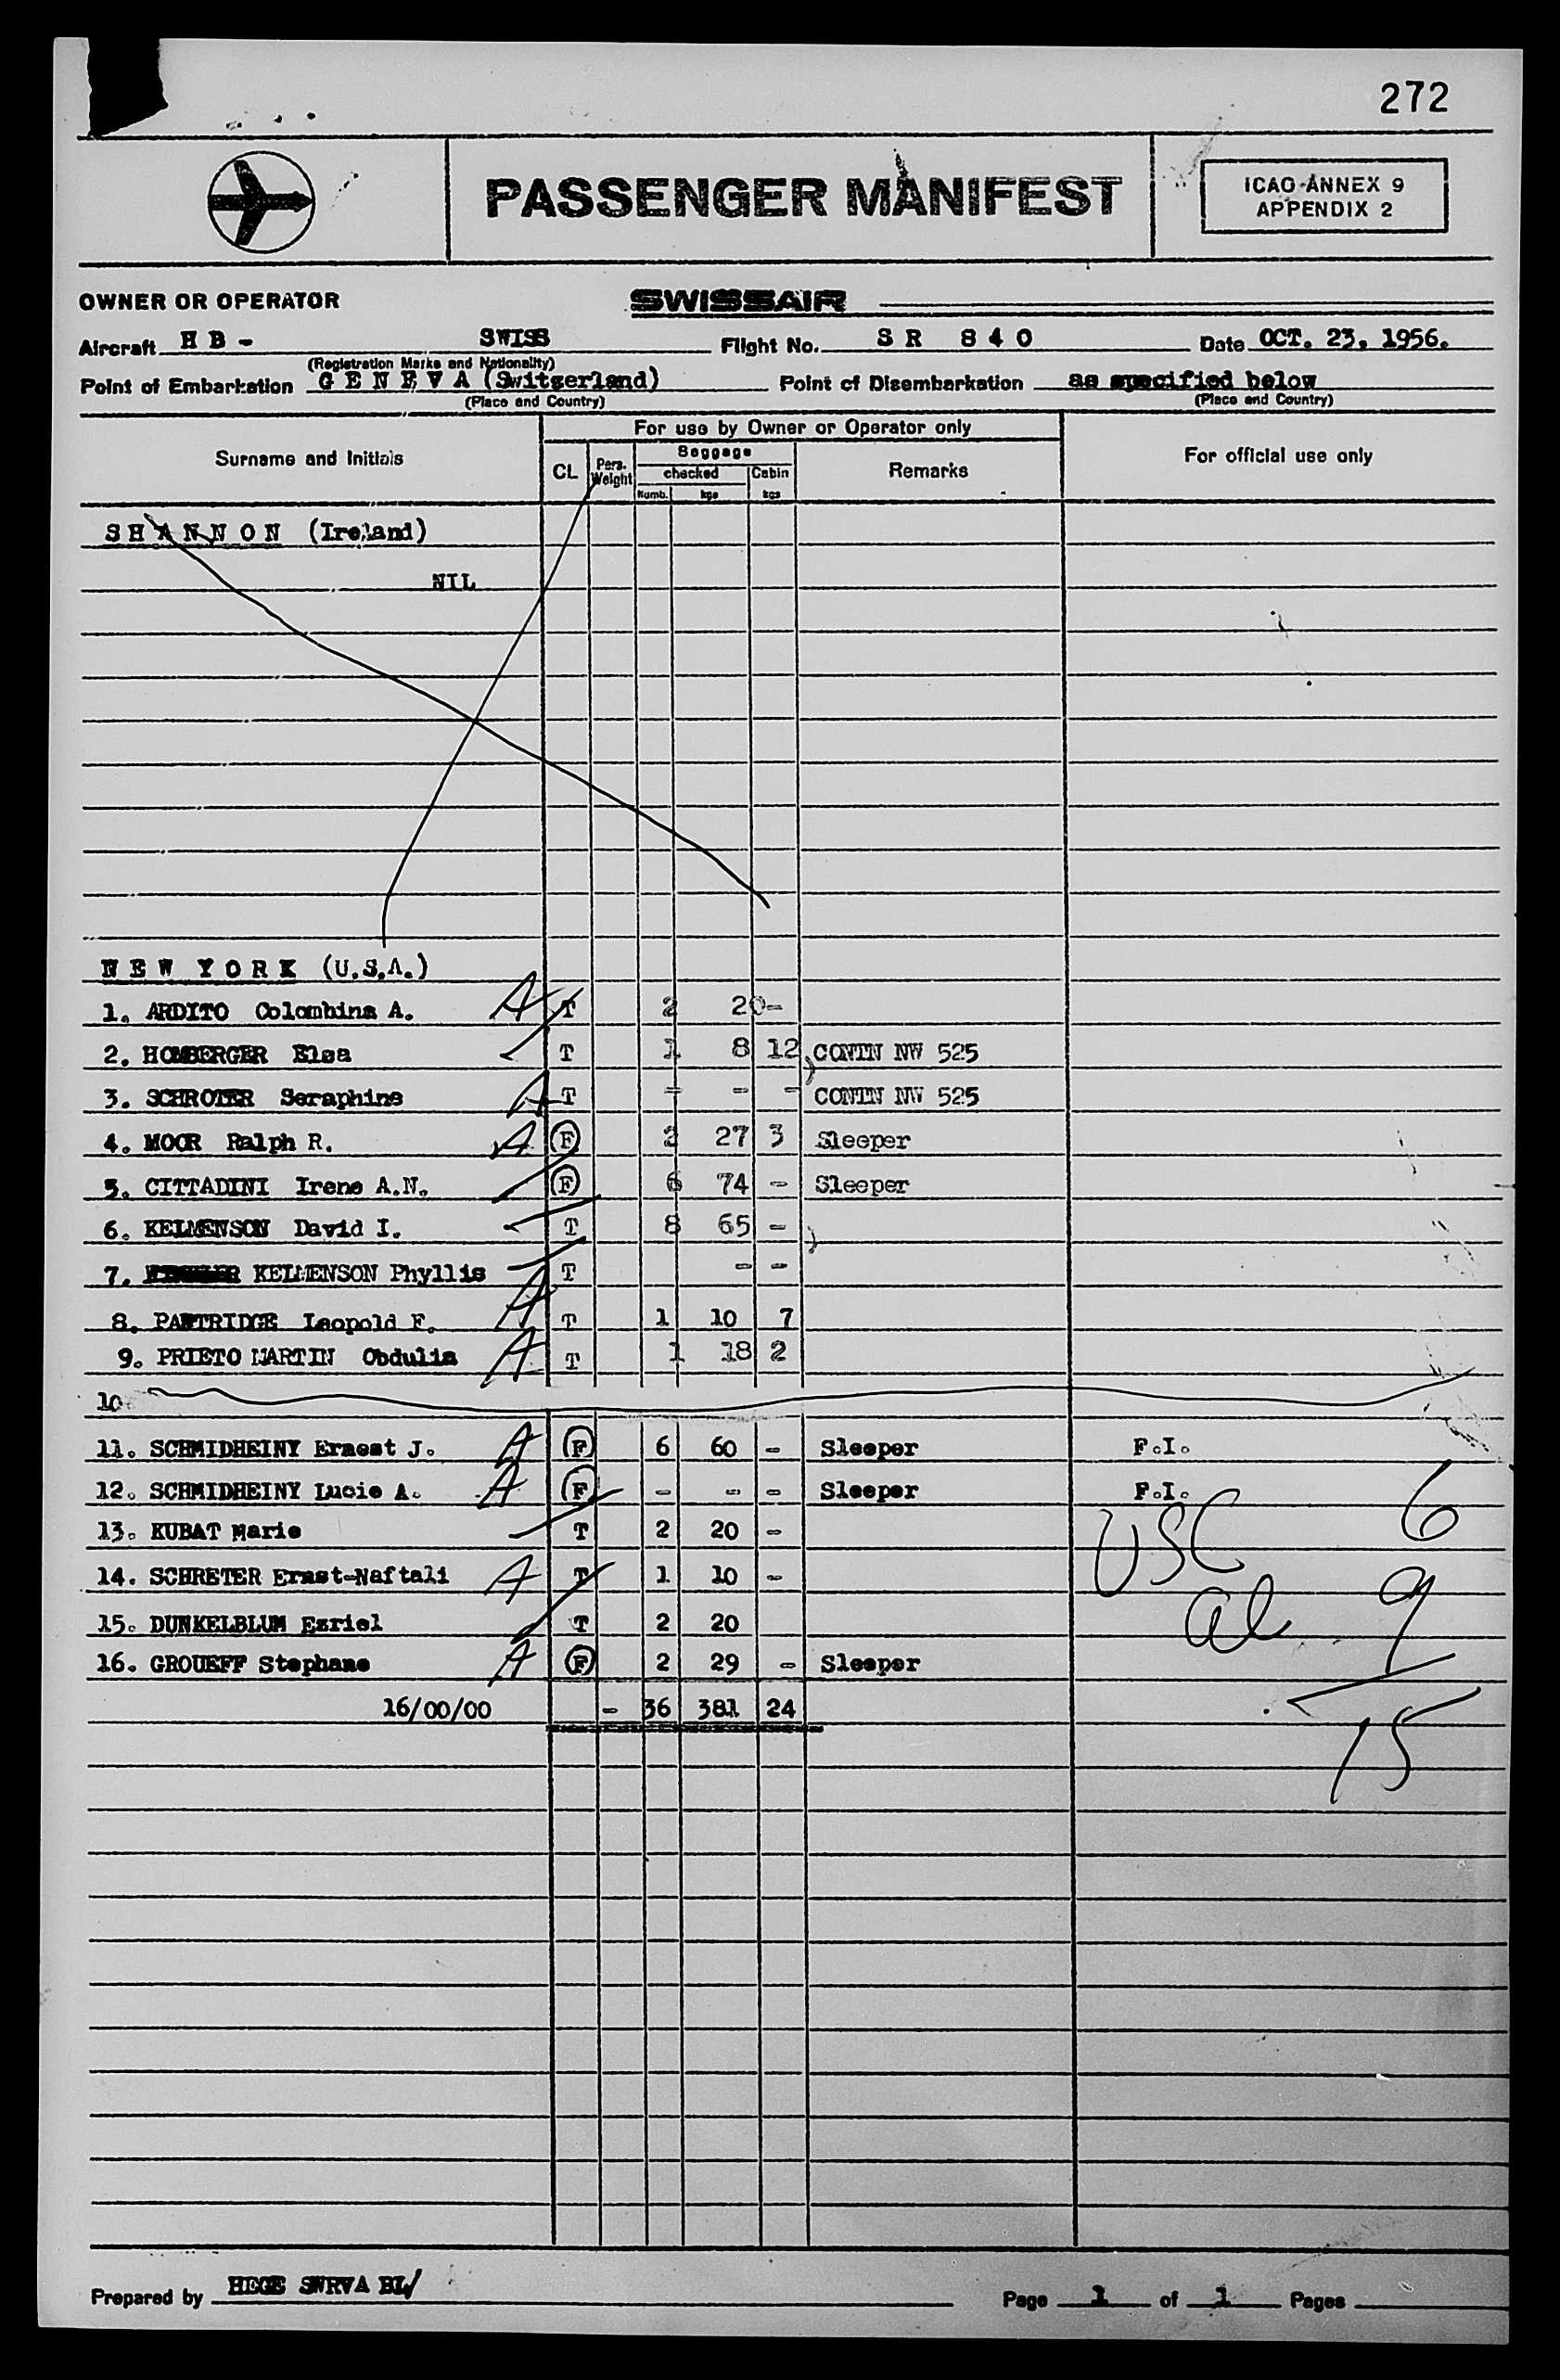 272
PASSENGER MANIFEST
ICAO ANNEX 9
APPENDIX 2
OWNER OR OPERATOR SWISSAIR
Aircraft H B - SWISS Flight No. S R 8 4 0 Date OCT. 23, 1956.
(Registration Marks and Nationality)
Point of Embarkation G E N E V A (Switzerland) Point of Disembarkation as specified below
(Place and Country) (Place and Country)
Surname and Initials For use by Owner or Operator only For official use only
CL Pers. Weight Baggage Remarks
checked Cabin
Numb. kgs kgs
S H A N N O N (Ireland)
NIL
N E W Y O R K (U.S.A.)
1. ARDITO Colombina A. A T 2 20-
2. HOMBERGER Elsa T 1 8 12 ) CONTN NW 525
3. SCHROTER Seraphine A T - - - CONTN NW 525
4. MOOR Ralph R. A F 2 27 3 Sleeper
5. CITTADINI Irene A.N. F 6 74 - Sleeper
6. KELMENSON David I. T 8 65 - )
7. KELMENSON Phyllis T - -
8. PARTRIDGE Leopold F. A T 1 10 7
9. PRIETO MARTIN Obdulia A T 1 18 2
10
11. SCHMIDHEINY Ernest J. A F 6 60 - Sleeper F.I.
12. SCHMIDHEINY Lucie A. A F - - - Sleeper F.I.
13. KUBAT Marie T 2 20 - USC 6
14. SCHRETER Ernst-Naftali A T 1 10 -
15. DUNKELBLUM Ezriel T 2 20 al 9
16. GROUEFF Stephane A F 2 29 - Sleeper
16/00/00 - 36 381 24
15
Prepared by HEGE SWRVA BL Page 1 of 1 Pages